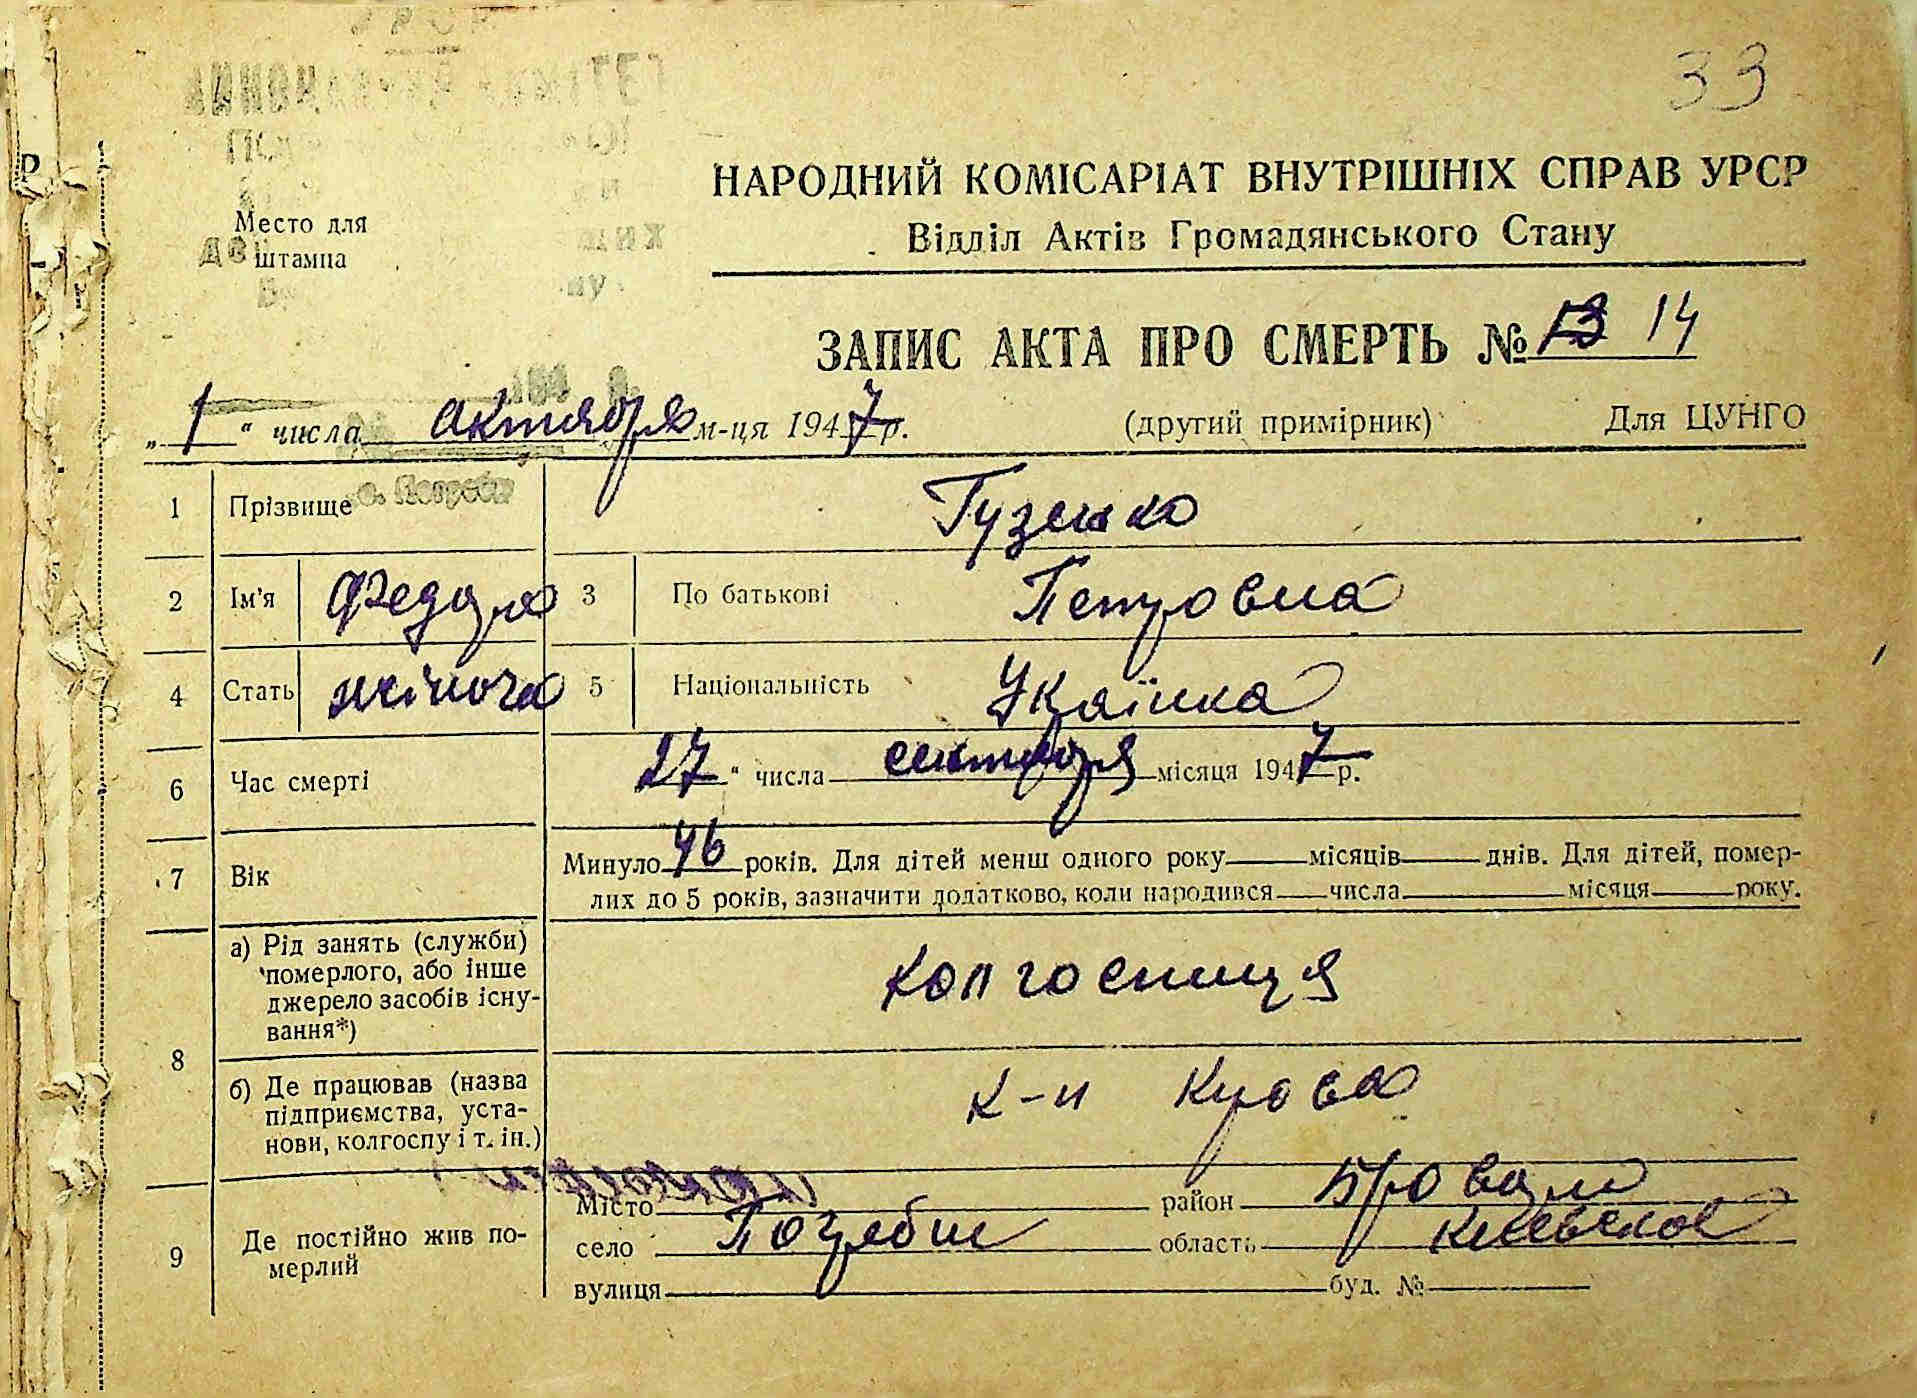 33
НАРОДНИЙ КОМІСАРІАТ ВНУТРІШНІХ СПРАВ УРСР
Відділ Актів Громадянського Стану
Место для
штампа
ЗАПИС АКТА ПРО СМЕРТЬ № 13 14
„1“ числа октября м-ця 1947 р. (другий примірник) Для ЦУНГО
1 Прізвище Гузенко
с. Погреби
2 Ім'я Федора 3 По батькові Петровна
4 Стать жіноча 5 Національність Украінка
6 Час смерті 27 “ числа сентября місяця 1947 р.
7 Вік Минуло 46 років. Для дітей менш одного року місяців днів. Для дітей, помер-
лих до 5 років, зазначити додатково, коли народився числа місяця року.
8 а) Рід занять (служби) померлого, або інше джерело засобів існу-вання*) колгоспниця
б) Де працював (назва підприємства, уста-нови, колгоспу і т. ін.) к-п Кірова
9 Де постійно жив по-мерлий
Місто район Бровари
село Погреби область Киевская
вулиця буд. №